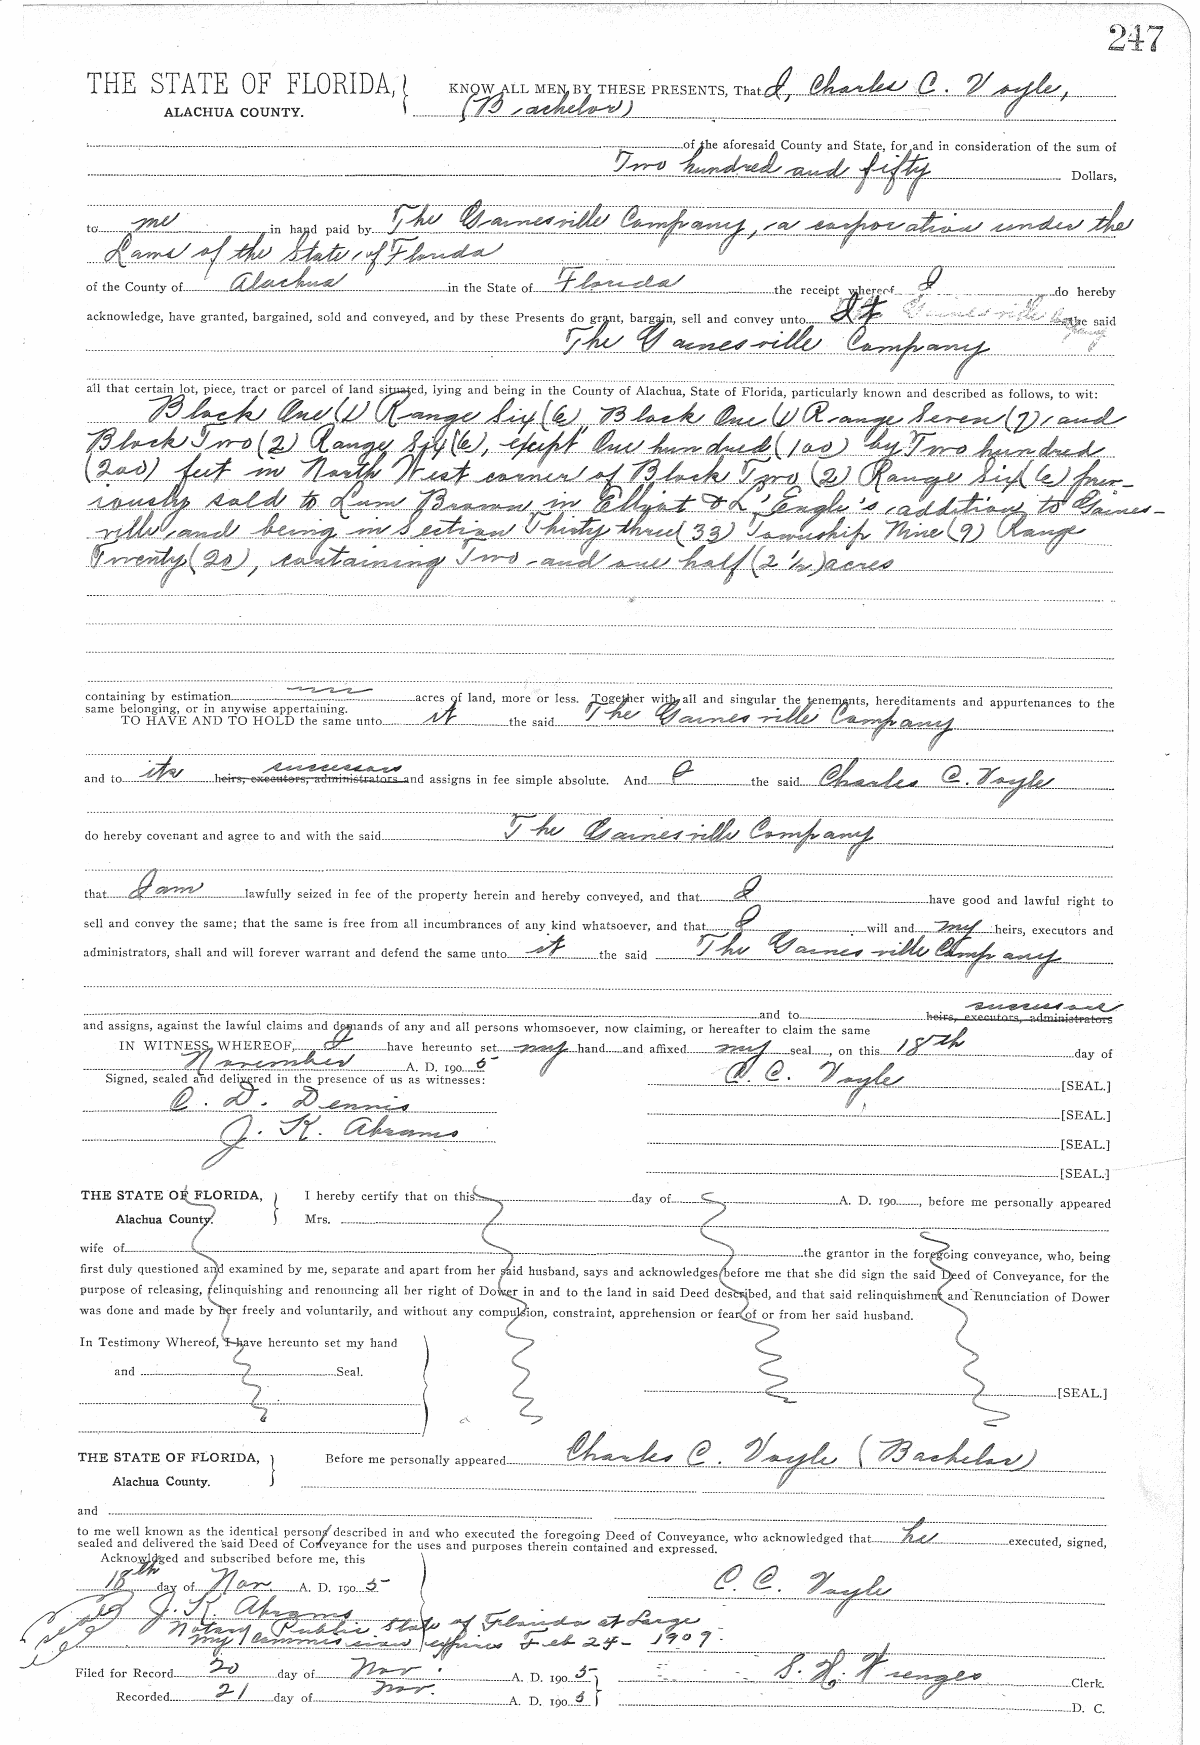 247
THE STATE OF FLORIDA, KNOW ALL MEN BY THESE PRESENTS, That I, Charles C. Voyle,
ALACHUA COUNTY. (Bachelor)
of the aforesaid County and State, for and in consideration of the sum of
Two hundred and fifty Dollars,
to me in hand paid by The Gainesville Company, a corporation under the
Laws of the State of Florida
of the County of Alachua in the State of Florida the receipt whereof I do hereby
acknowledge, have granted, bargained, sold and conveyed, and by these Presents do grant, bargain, sell and convey unto It the said
The Gainesville Company
all that certain lot, piece, tract or parcel of land situated, lying and being in the County of Alachua, State of Florida, particularly known and described as follows, to wit:
Block One (1) Range Six (6, Block One (1) Range Seven (7), and
Block Two (2) Range Six (6), except One hundred (100) by Two hundred
(200) feet in North West corner of Block Two (2) Range Six (6) prev-
iously sold to Lum Brown in Elliot & L'Engle's addition to Gaines-
ville, and being in Section Thirty three (33) Township Nine (9) Range
Twenty (20), containing Two and one half (2 1/2) acres
containing by estimation acres of land, more or less. Together with all and singular the tenements, hereditaments and appurtenances to the
same belonging, or in anywise appertaining.
TO HAVE AND TO HOLD the same unto it the said The Gainesville Company
successors
and to its heirs, executors, administrators and assigns in fee simple absolute. And I the said Charles C. Voyle
do hereby covenant and agree to and with the said The Gainesville Company
that I am lawfully seized in fee of the property herein and hereby conveyed, and that I have good and lawful right to
sell and convey the same; that the same is free from all incumbrances of any kind whatsoever, and that I will and my heirs, executors and
administrators, shall and will forever warrant and defend the same unto it the said The Gainesville Company
successors
and to heirs, executors, administrators
and assigns, against the lawful claims and demands of any and all persons whomsoever, now claiming, or hereafter to claim the same
IN WITNESS WHEREOF, I have hereunto set my hand and affixed my seal, on this 18th day of
November A. D. 1905
Signed, sealed and delivered in the presence of us as witnesses: C. C. Voyle [SEAL.]
C. D. Dennis [SEAL.]
J. K. Abrams [SEAL.]
[SEAL.]
THE STATE OF FLORIDA, I hereby certify that on this day of A. D. 190 , before me personally appeared
Alachua County. Mrs.
wife of the grantor in the foregoing conveyance, who, being
first duly questioned and examined by me, separate and apart from her said husband, says and acknowledges before me that she did sign the said Deed of Conveyance, for the
purpose of releasing, relinquishing and renouncing all her right of Dower in and to the land in said Deed described, and that said relinquishment and Renunciation of Dower
was done and made by her freely and voluntarily, and without any compulsion, constraint, apprehension or fear of or from her said husband.
In Testimony Whereof, I have hereunto set my hand
and Seal.
[SEAL.]
THE STATE OF FLORIDA, Before me personally appeared Charles C. Voyle (Bachelor)
Alachua County.
and
to me well known as the identical persons described in and who executed the foregoing Deed of Conveyance, who acknowledged that he executed, signed,
sealed and delivered the said Deed of Conveyance for the uses and purposes therein contained and expressed.
Acknowldged and subscribed before me, this
18th day of Nov A. D. 1905 C. C. Voyle
J. K. Abrams
Notary Public State of Florida at Large
my commission expires Feb 24- 1909.
Filed for Record 20 day of Nov. A. D. 1905 S. H. Wienges Clerk.
Recorded 21 day of Nov. A. D. 1905 D. C.